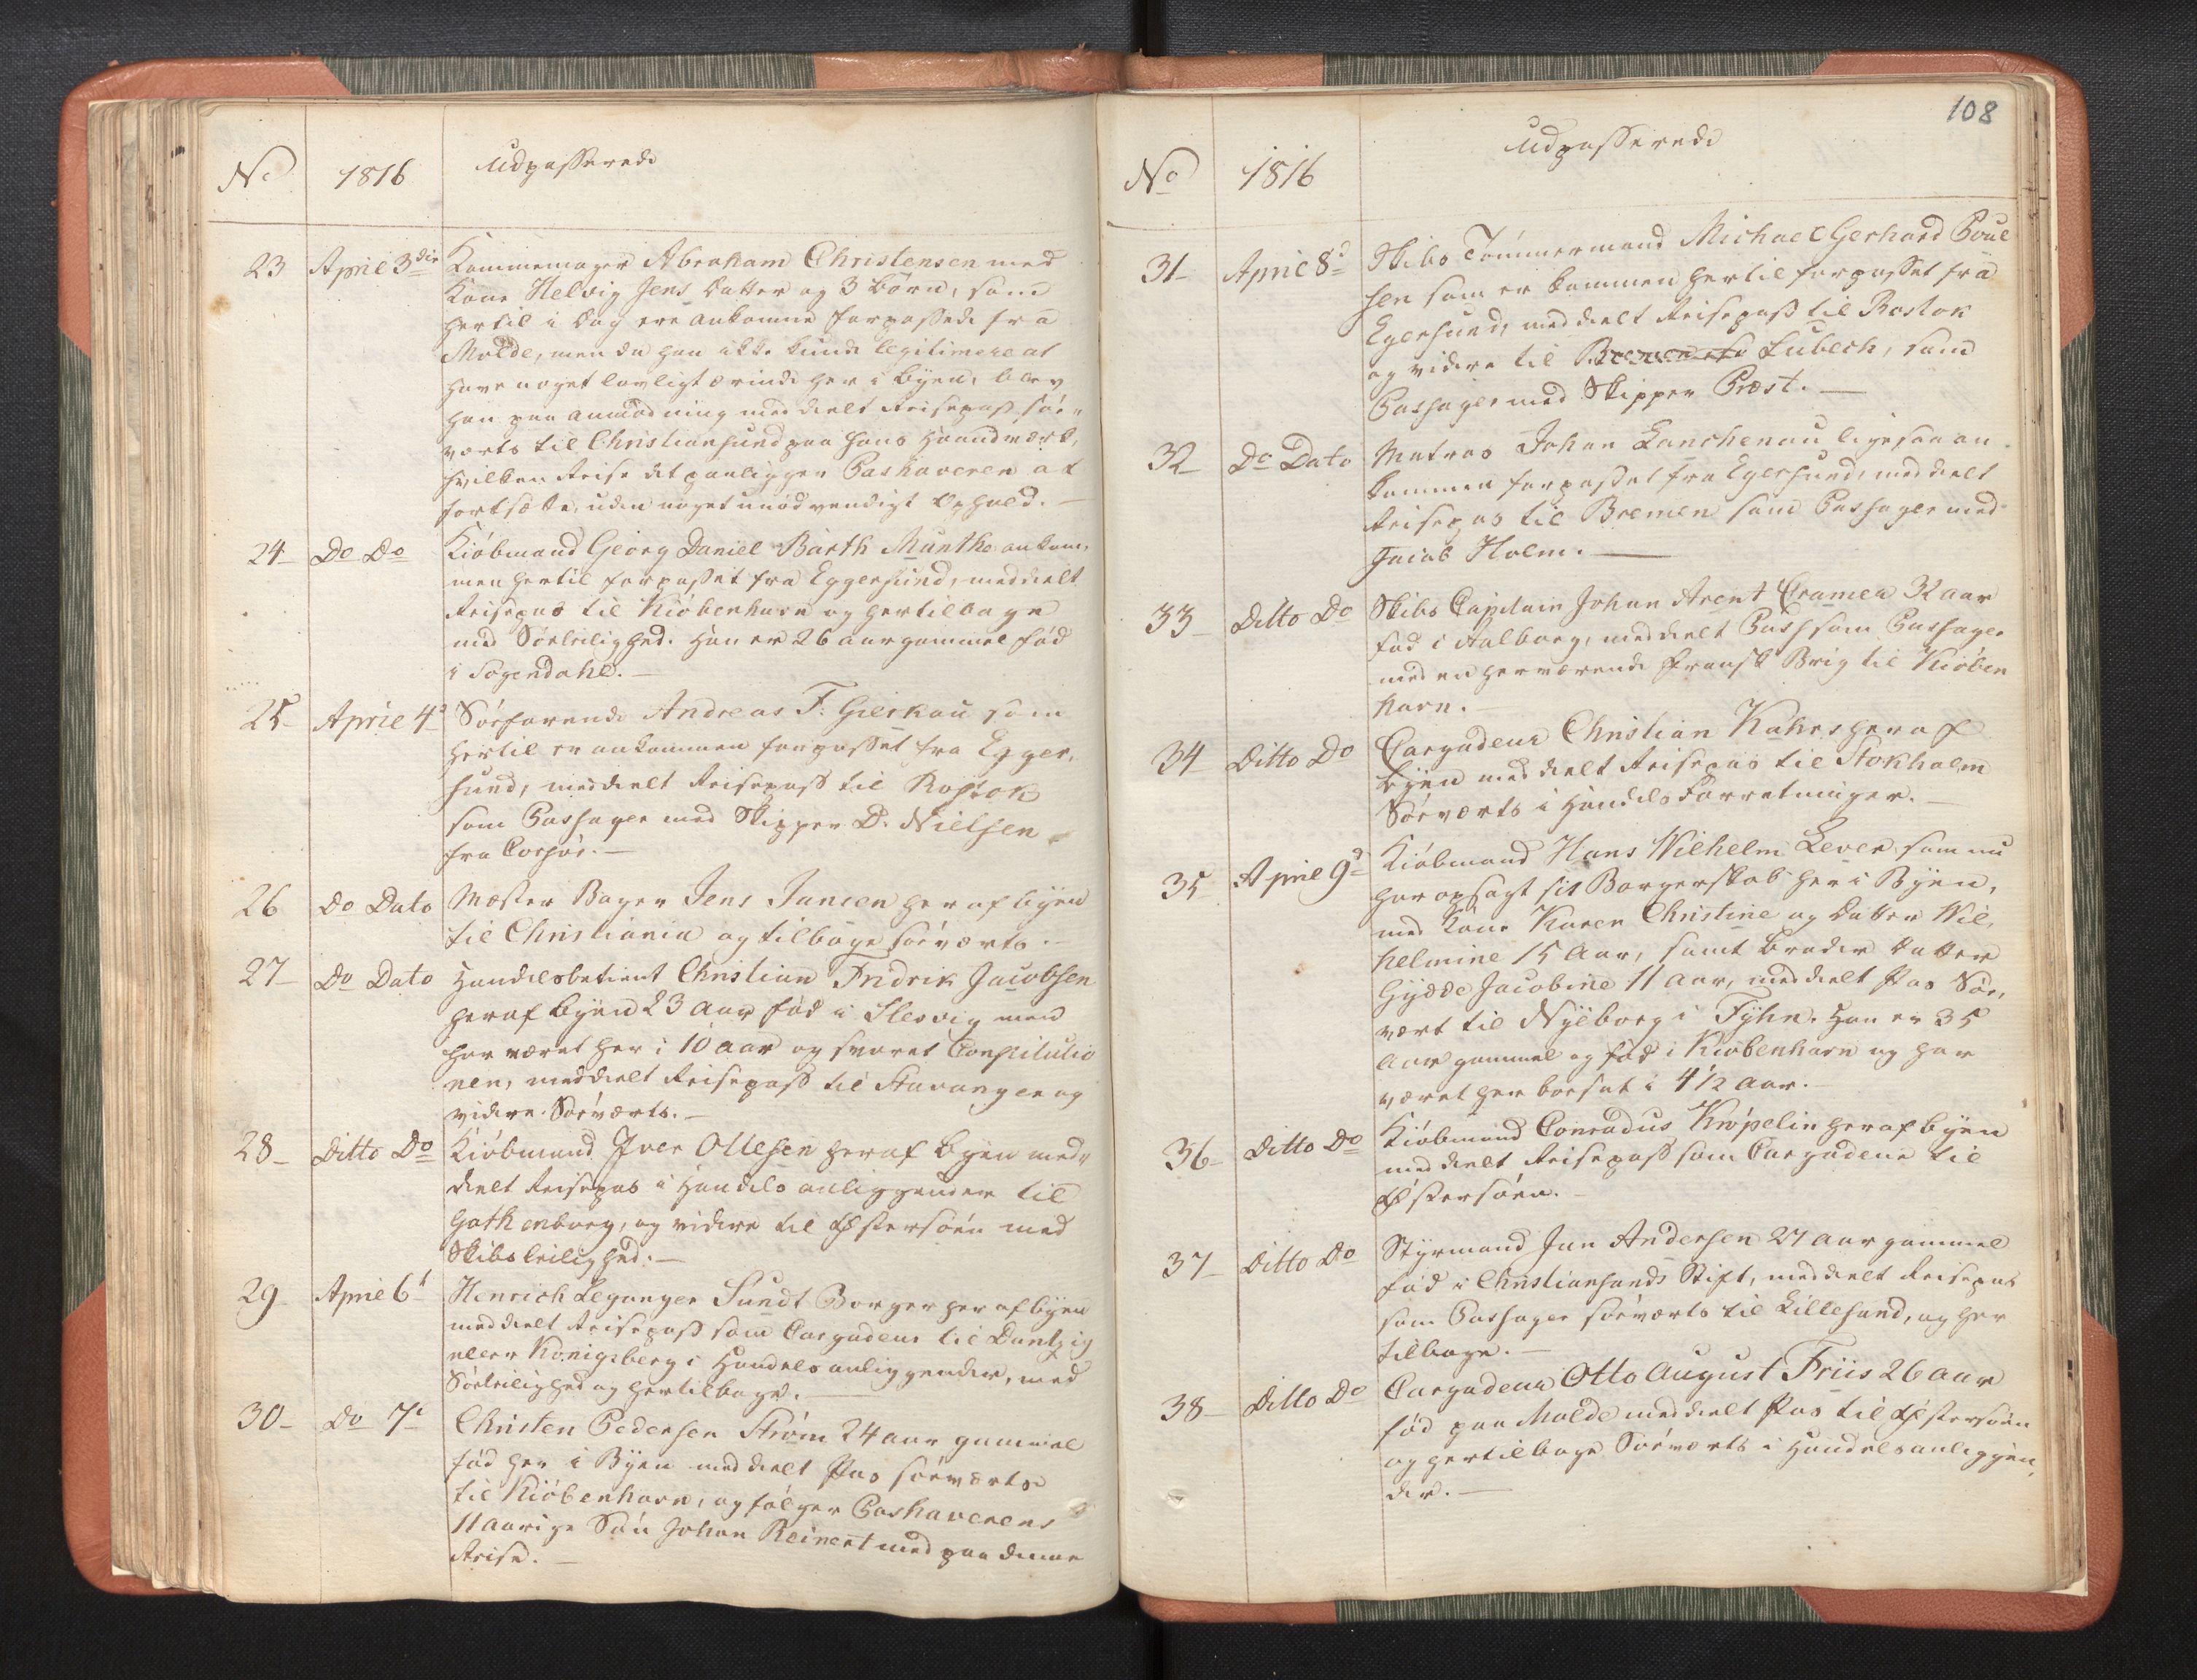 No 1816 Udpasserede
23 April 3die Kammemager Abraham Christensen med
Kone Helvig Jens Datter og 3 Børn, som
hertil i Dag ere ankomne forpassede fra
Molde, men da han ikke kunde legitimere at
have noget lovligt ærinde her i byen, blev
han paa anmodning meddeelt Reisepas søe-
værts til Christiansund paa hans Haandværk,
hvilken Reise det paaligger Pashaveren at
fortsætte, uden noget unødvendigt Ophold. —
24 Do Do Kiøbmand Georg Daniel Barth Munthe ankom-
men hertil forpasset fra Eggersund, meddeelt
Reisepas til Kiøbenhavn og hertilbage
med Søeleilighed. Han er 26 aar gammel fød
i Sogendahl. —
25 April 4d Søefarende Andreas F. Gierkau som
hertil er ankommen forpasset fra Egger-
sund, meddeelt Reisepass til Rostok
som Passager med Skipper D. Nielsen
fra Corsøer. —
26 Do Dato Mæster Bager Jens Jansen her af byen
til Christiania og tilbage søeværts. —
27 Do Dato Handelsbetient Christian Fridrik Jacobsen
her af byen 23 Aar fød i Slesvig men
har været her i 10 aar og svoret Constitutio
nen, meddeelt Reisepass til Stavanger og
videre Søeværts. —
28 Ditto Do Kiøbmand Iver Ollesen her af byen med-
deelt Reisepas i Handels anliggender til
Gothenborg, og videre til Østersøen med
Skibsleilighed. —
29 April 6t Henrich Leganger Sundt Borger her af byen
meddeelt Reisepass som Cargadeur til Dantzig
eller Königsberg i Handels anliggender, med
Søeleilighed og hertilbage. —
30 Do 7d Christen Pedersen Strøm 24 aar gammel
fød her i Byen meddeelt Pas søeværts
til Kiøbenhavn, og følger Pashaverens
11 aarige Søn Johan Reinert med paa denne
Reise. —
108
No 1816 Udpasserede
31 April 8d Skibs Tømmermand Michael Gerhard Poul
sen som er kommen hertil forpasset fra
Egersund, meddeelt Reisepass til Rostok
og videre til Bremen Lübech, som
Passager med Skipper Præst. —
32 Do Dato Matros Johan Lanchenau ligesaa an
kommen forpasset fra Egersund, meddeelt
Reisepas til Bremen som Passager med
Jacob Holm. —
33 Ditto Do Skibs Capitain Johan Arent Cramer 32 aar
fød i Aalborg, meddeelt Pass som Passager
med en herværende Fransk Brig til Kiøben
havn. —
34 Ditto Do Cargadeur Christian Kahrs her af
byen meddeelt Reisepas til Stokholm
Søeværts i Handels Forretninger. —
35 April 9d Kiøbmand Hans Wilhelm Lever som nu
har opsagt sit Borgerskab her i Byen,
med Kone Karen Christine og Datter Wil-
helmine 15 Aar, samt Broder Datter
Gydde Jacobine 11 aar, meddeelt Pas Søe-
vært til Nyeborg i Fyhn. Han er 35
Aar gammel og fød i Kiøbenhavn og har
været her bosat i 4 1/2 Aar. —
36 Ditto Do Kiøbmand Conradus Krøpelin her af byen
meddeelt Reisepass som Cargadeur til
Østersøen. —
37 Ditto Do Styrmand Jan Andersen 27 aar gammel
fød i Christiansands Stift, meddeelt Reisepas
som Passager søeværts til Lillesand, og her
tilbage. —
38 Ditto Do Cargadeur Otto August Friis 26 aar
fød paa Molde meddeelt Pas til Østersøen
og hertilbage Søeværts i Handelsanliggen-
der. —